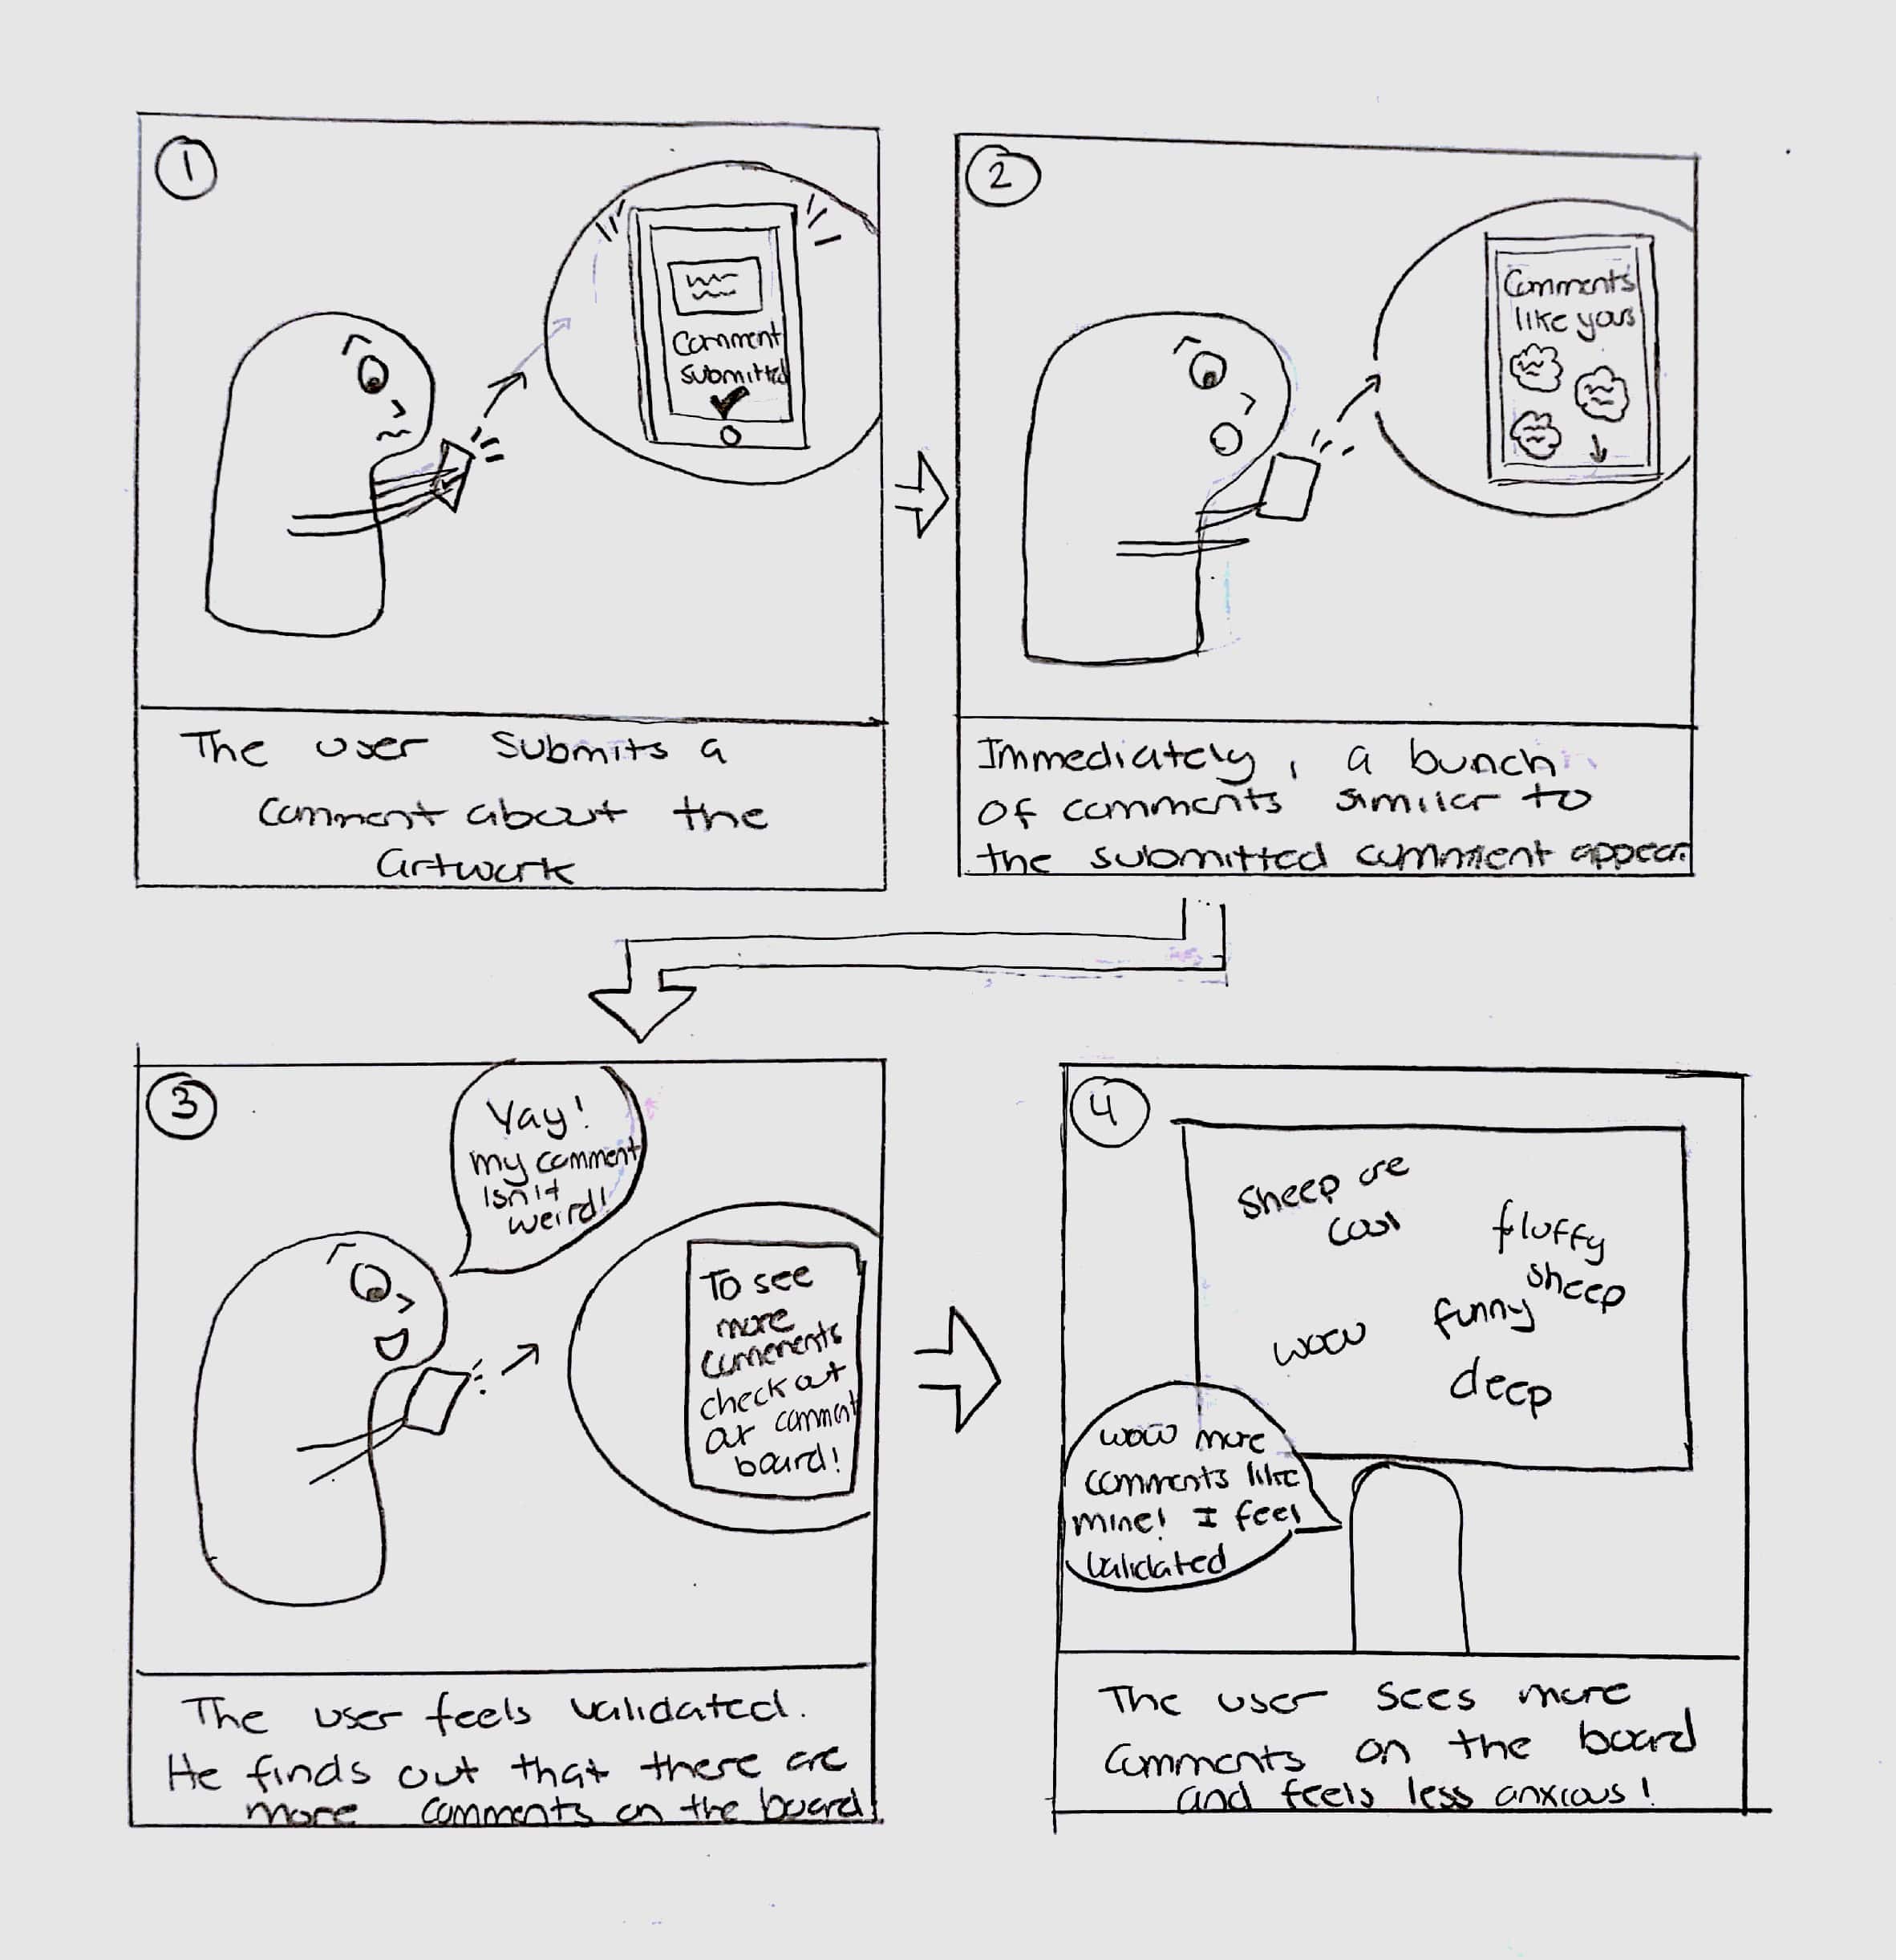 1
Comment
submitted
The user submits a
comment about the
artwork
2
Comments
like yours
Immediately, a bunch
of comments similar to
the submitted comment appear.
3
Yay!
my comment
isn't
weird!
To see
more
comments
check out
our comment
board!
The user feels validated.
He finds out that there are
more comments on the board!
4
sheep are
cool
fluffy
sheep
funny
wow
deep
wow more
comments like
mine! I feel
validated
The user sees more
comments on the board
and feels less anxious!